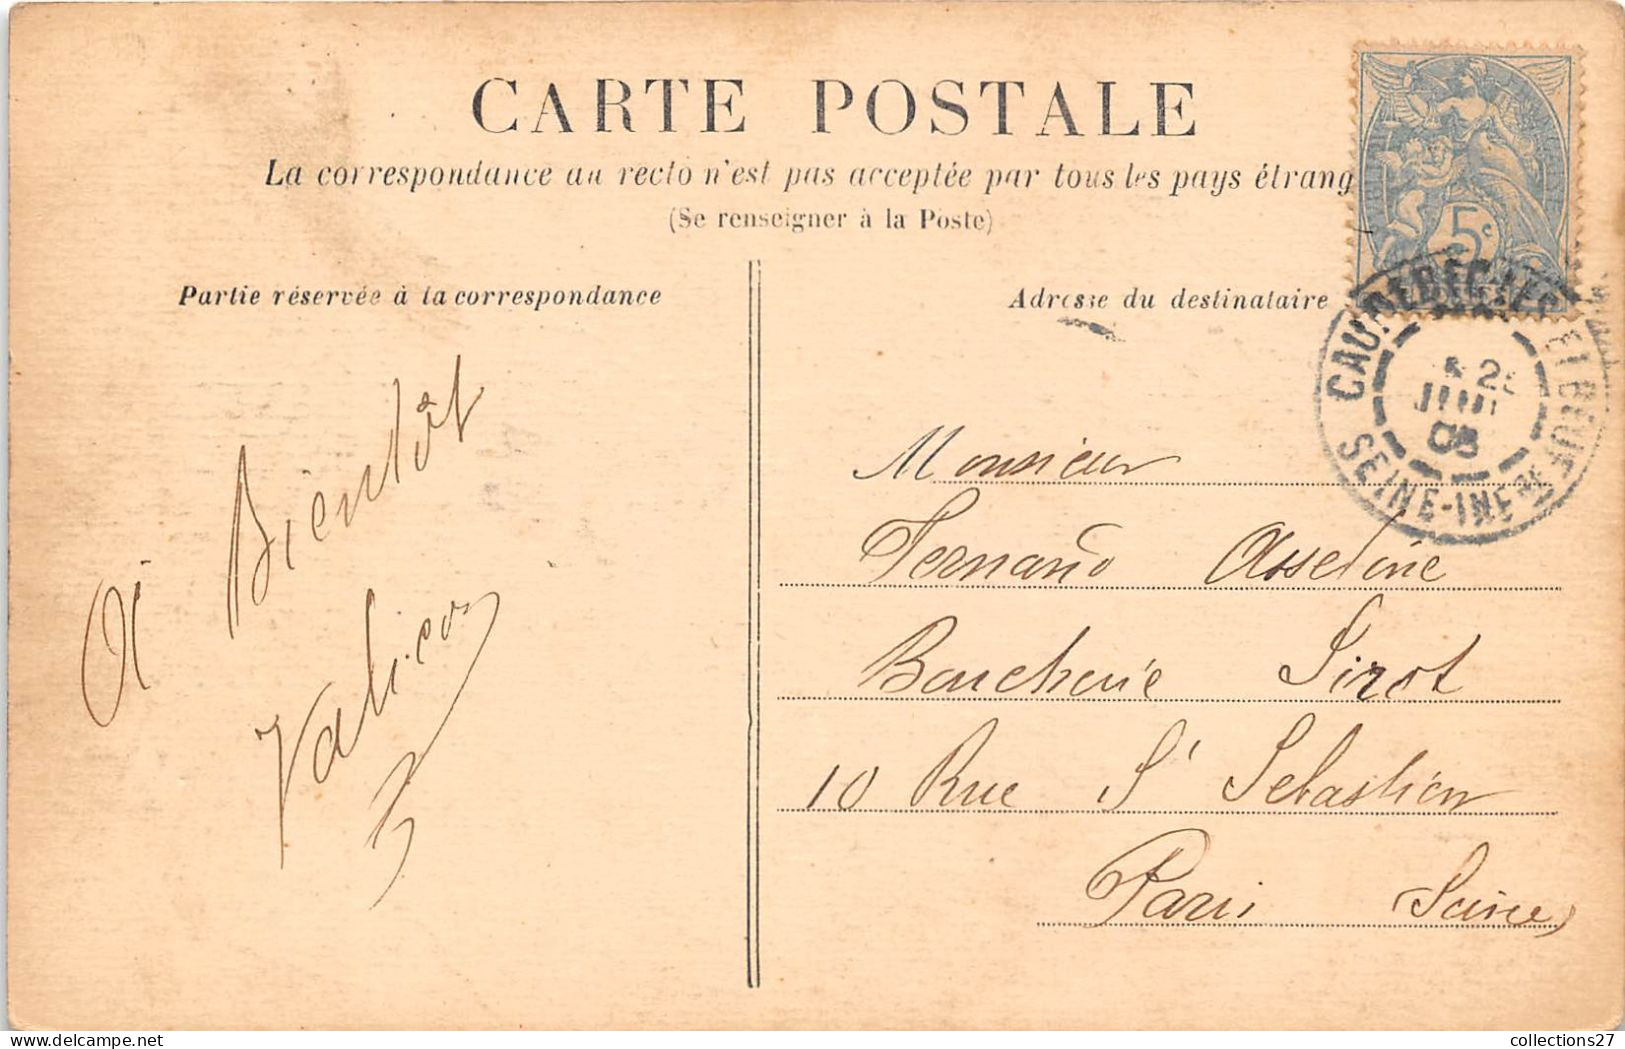 CARTE POSTALE
La correspondance au recto n'est pas acceptée par tous les pays étrang
(Se renseigner à la Poste)
Partie réservée à la correspondance
Adresse du destinataire
5c
CAUDEBEC-LES-ELBEUF
2
JUIL
05
SEINE-INFRE
A Bientôt
Monsieur
Fernand Asseline
Boucherie Sirot
10 Rue St Sebastien
Paris Seine
collections27